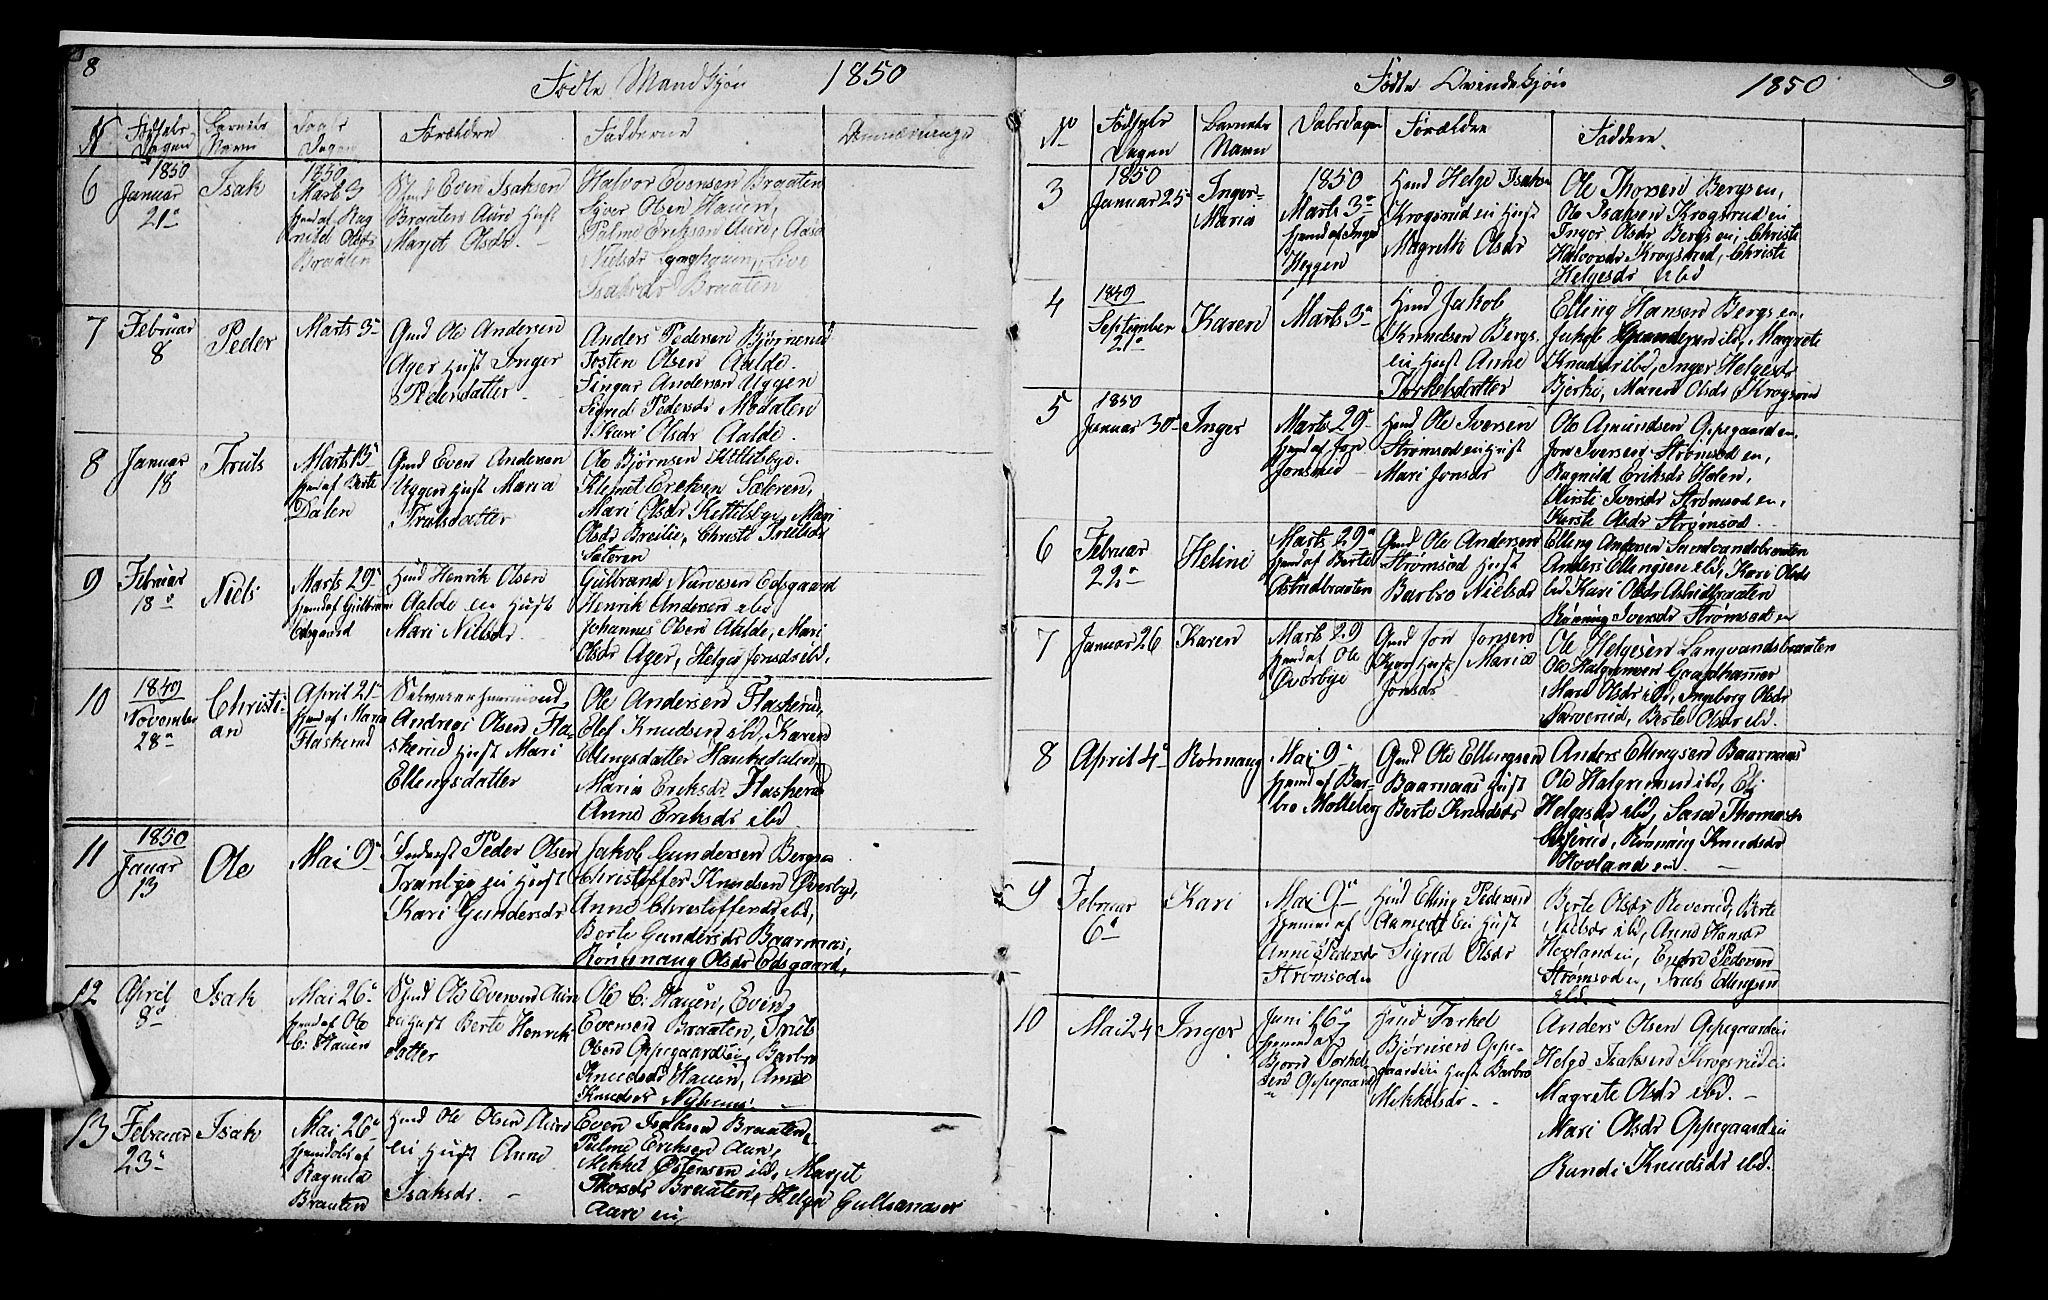 8
Fødte Mandkjøn 1850
N Fødsels Dagen
Barnets Navn
Daabs Dagen
Forældre
Faddere
Anmærkninge
6
1850
Januar
21de
Isak
1850
Marts 3
hjemd af Rag
nild Olsdr
Braaten
Even Isaksen
Braaten Aure Hust
Marjet Olsdr.
Halvor Evensen Braaten
Syver Olsen Hauen,
Palme Eriksen Aure,
Nielsdr Live
Isaksdr Braaten
7
Februar
8
Peder
Marts 3
Gmd Ole Andersen
Ager Hust Inger
Pedersdatter
Anders Pedersen Bjørnerud
Tosten Olsen Aalde.
Andersen Uggen
Sigrid Pedersdr Modalen
Kari Olsdr Aalde.
8
Januar
18
Truls
Marts 13
hjmd af Berte
Dalen
Gmd Even Andersen
Uggen Hust Maria
Trulsdatter
Ole Bjørnsen Kittilsbye.
Klemet Eriksen Sateren,
Mari Olsdr Kettilsbye, Mari
Olsdr Breilie, Christi Trulsdr
Sateren
9
Februar
18de
Niels
Marts 29
hjemd af Gulbran
Edsgaard
Hmd Henrik Olsen
Aalde ei Hust
Mari Nielsdr.
Gulbrand Narvesen Edsgaard
Henrik Andersen ibd
Johannes Olsen Aalde, Mari
Olsdr Ager, Helge Jonsdr ibd.
10
1849
November
28de
Christi-
an
April 21
hjmd af Maria
Flaskerud
Andreas Olsen Fla-
skerud Hust Mari
Ellingsdatter
Ole Andersen Flaskerud,
Elef Knudsen ibd, Karen
Ellingsdatter Haukedalen,
Maria Eriksdr Flaskerud
Anne Eriksdr ibd
11
1850
Januar
13
Ole
Mai 9
Peder Olsen
Tranby ei Hust
Kari Gundersdr
Jakob Gundersen Bergs ei
Christoffer Knudsen Overby,
Anne Christoffersdr ibd,
Berte Gundersdr Baarnaas,
Rønnaug Olsdr Edsgaard,
12
April
8de
Isak
Mai 26
hjemd af Ole
E: Hauen
Ole Evensen Aure
ei Hust Berte Henrik
datter
Ole E: Hauen, Even
Evensen Braaten, Truls
Olsen Oppegaard ei, Barbro
Knudsdr Hauen, Anne
Knudsdr
13
Februar
23
Isak
Mai 26
hjemdøbt af
Ragnild
Braaten
Hmd Ole Olsen Aure
ei Hust Anne
Isaksdr.
Even Isaksen Braaten,
Palme Eriksen Aure,
Mikkel Østensen ibd, Marget
Thorsdr Braaten, Helge Gulbrandsdr
Aare ei
9
Fødte Qvindekjøn 1850
No
Fødsels Dagen
Barnets Navn
Daabsdagen
Forældre
Faddere.
3
1850
Januar 25
Inger-
Maria
1850
Marts 3
hjemd af Inger
Heggen
Hmd Helge Isaksen
Krogsrud ei Hust
Magrethe Olsdr
Ole Thorsen Bergs ei,
Ole Isaksen Krogsrud ei
Inger Olsdr Bergs ei, Christi
Halvorsdr Krogsrud, Christi
Helgesdr ibd
4
1849
September
21de
Karen
Marts 3
Hmd Jakob
Knudsen Bergs
ei Hust Anne
Torkelsdatter
Elling Hansen Bergs ei,
Jakob Gundersen ibd, Magrete
Knudsdr ibd, Inger Helgesdr
Bjerke, Maren Olsdr Krogsrud
5
1850
Januar 30
Inger
Marts 29
hjemd af Jon
Jonsrud
Hmd Ole Iversen
Strømsod ei Hust
Mari Jonsdr
Ole Amundsen Oppegaard ei,
Jon Iversen Strømsod ei,
Ragnild Eriksdr Holen,
Kirsti Iversdr Strømsod ei,
Kirste Olsdr Strømsod.
6
Februar
22de
Heline
Marts 29
hjemd af Berte
Astridbraaten
Gmd Ole Andersen
Strømsod Hust
Barbro Nielsdr
Elling Andersen Sandvandsbraaten
Anders Ellingsen ibd, Kari Olsdr
ibd Kari Olsdr Astridbraaten
Rønnug Iversdr Strømsod ei
7
Januar 26
Karen
Marts 29
hjemd af Ole
Overbye
Gmd Jon Jonsen
Hust Maria
Jonsdr
Ole Helgesen Langvandsbraaten
Ole Halgrimsen
Maria Olsdr ibd, Ingeborg Olsdr
Narverud, Berte Olsdr ibd.
8
April 4
Rønnaug
Mai 9
hjemd af Bar-
bro Molleberg
Gmd Ole Ellingsen
Baarnaas Hust
Berte Knudsdr
Anders Ellingsen Baarnaas
Ole Halgrimsen ibd, Eli
Helgesdr ibd, Sara Thomasdr
Rønnug Knudsdr
Hovland ei.
9
Februar
6
Kari
Mai 9
hjemmed af
Anne Pedersdr
Strømsod ei
Hmd Elling Pedersen
Aamodt ei Hust
Sigrid Olsdr
Berte Olsdr Reverud, Berte
Nielsdr ibd, Anne Hansdr
Hovland ei, Endre Pedersen
Strømsod ei, Truls Ellingsen
ibd
10
Mai 24
Inger
Juni 16
hjemmed af
Bjørn Torkel-
sen Oppegaard
ei
Hmd Torkel
Bjørnsen Oppe-
gaard ei Hust Barbro
Mikkelsdr
Anders Olsen Oppegaard ei
Helge Isaksen Krogsrud ei
Magrete Olsdr ibd.
Mari Olsdr Oppegaard ei
Randi Knudsdr ibd.